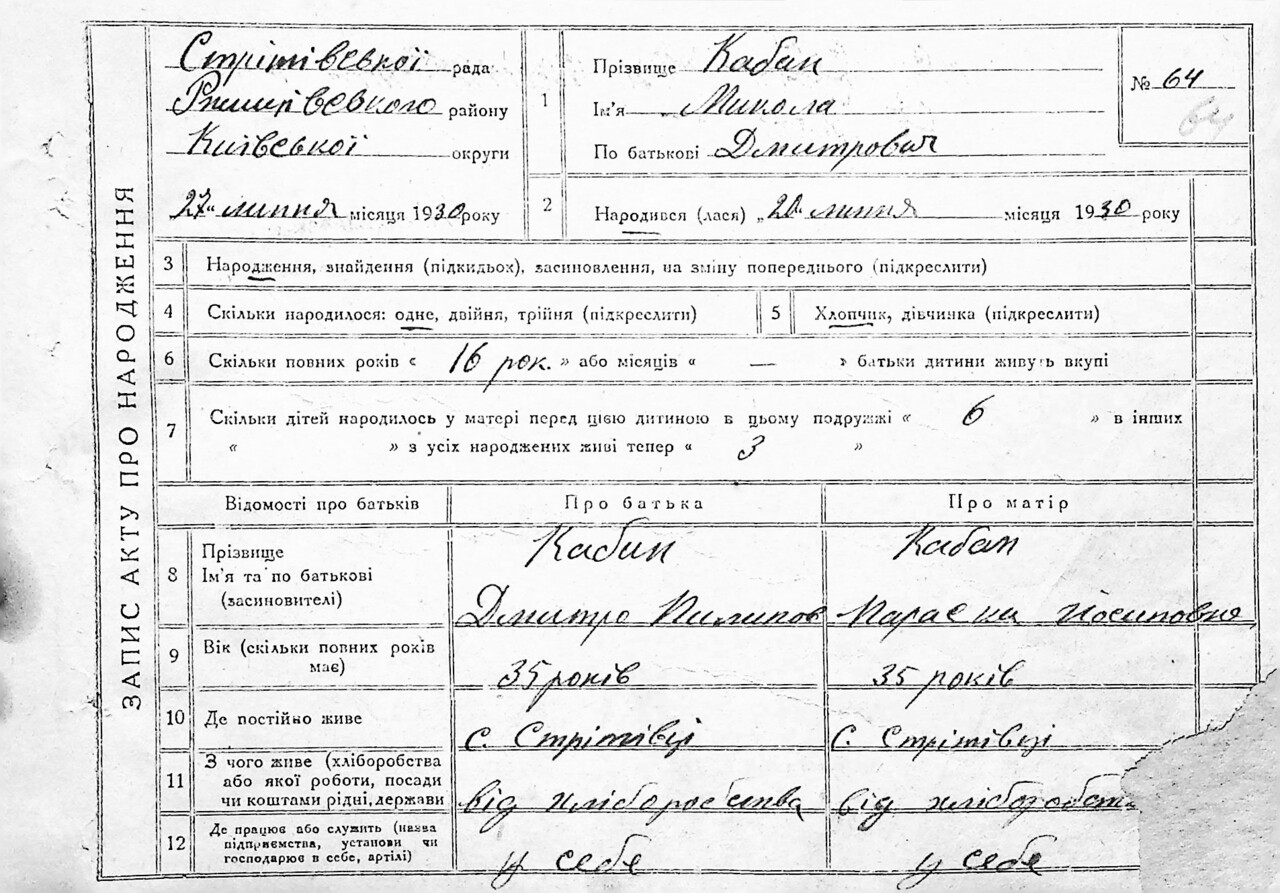 ЗАПИС АКТУ ПРО НАРОДЖЕННЯ
Стрітівської рада
Ржищівського району
Київської округи
27 липня місяця 1930 року
1
Прізвище Кабан
Ім'я Микола
По батькові Дмитрович
№ 64
64
2
Народився (лася) „20 липня місяця 1930 року
3 Народження, знайдення (підкидьох), засиновлення, на зміну попереднього (підкреслити)
4 Скільки народилося: одне, двійня, трійня (підкреслити)
5 Хлопчик, дівчинка (підкреслити)
6 Скільки повних років « 16 рок. » або місяців « — » батьки дитини живуть вкупі
7 Скільки дітей народилось у матері перед цією дитиною в цьому подружжі « 6 » в інших
« » з усіх народжених живі тепер « 3 »
Відомості про батьків Про батька Про матір
8 Прізвище Кабан Кабан
Ім'я та по батькові
(засиновителі) Дмитро Пилипов Параска Йосиповна
9 Вік (скільки повних років
має) 35 років 35 років
10 Де постійно живе с. Стрітівці с. Стрітівці
11 З чого живе (хліборобства
або якої роботи, посади
чи коштами рідні, держави від хліборобства від хліборобст
12 Де працює або служить (назва
підприємства, установи чи
господарює в себе, артілі) у себе у себе